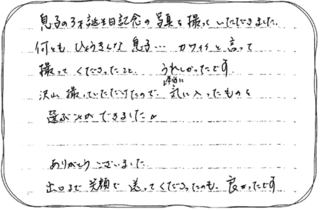 息子の3才誕生日記念の写真を撮っていただきました。
何とも ひょうきんな 息子… カワイイと言って
撮って くださったこと、 うれしかったです
沢山 撮っていただけたので、気に入ったものを
選ぶことができました
ありがとうございました
出口まで 笑顔で 送ってくださったのも、良かったです